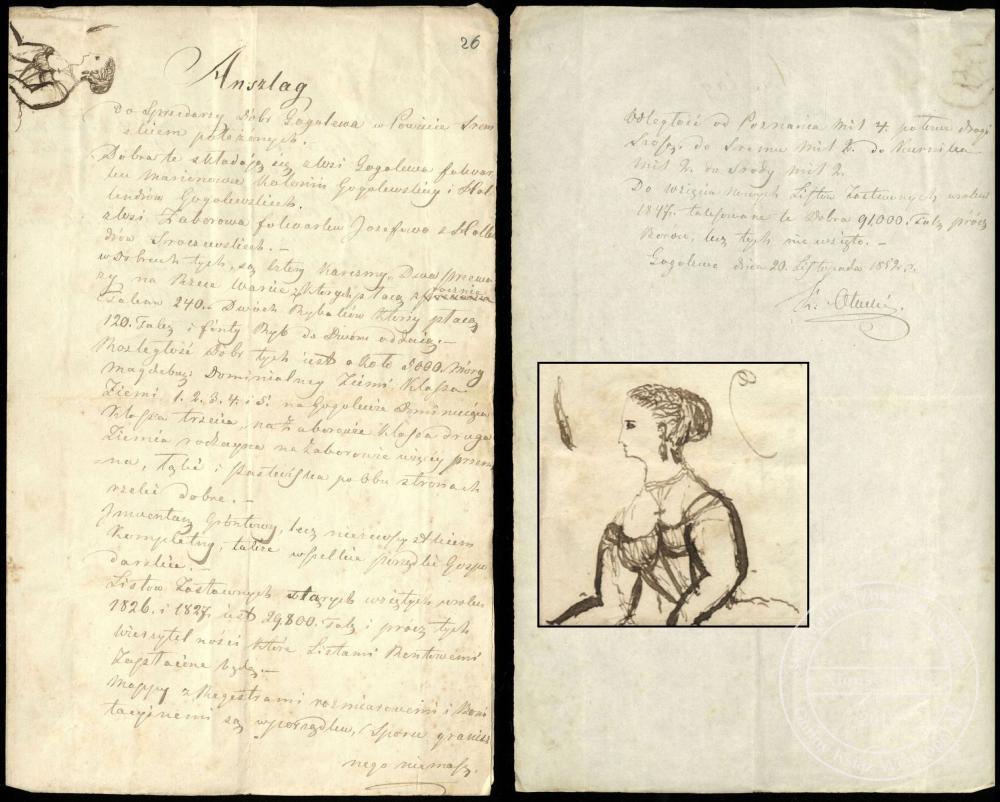 26
Anszlag
Do Sprzedarzy Dóbr Gogolewa w Powiecie Szrem
skiem położonych.
Dobra te składają się z Wsi Gogolewa folwar
ku Marionowa Kolonii Gogolewskiey i Hol
lendrów Gogolewskich.
z Wsi Zaborowa folwarku Jozefowa z Hollen
drów Sroczewskich. –
w Dobrach tych, są cztery Karczmy, Dwa Przewo
zy na Rzece Warcie z których płacą rocznie
Talarów 240. Dwóch Rybaków którzy płacą
120. Talr i funty Ryb do Dworu oddają. –
Rozległość Dóbr tych iest około 5000. Mórg
Magdebur: Dominialney Ziemi, Klassa
Ziemi 1. 2. 3. 4. i 5. na Gogolewie
Klassa trzecia, na Zaborowie Klassa druga
Ziemia rodzayna na Zaborowie więcey przen
na, Łąki i Pastwiska po obu stronach
rzeki dobre. –
Inwentarz Gruntowy, lecz nie zewszystkiem
Kompletny, także wszelkie porządki Gospo
darskie. –
Listów Zastawnych starych wziętych w roku
1826. i 1827. iest 29,800. Talr i prócz tych
wierzytelności które Listami Rentowemi
Zapłacone będą. –
Mappy z Regestrami rozmiarowemi i Boni
tacyjnemi są w porządku, Sporu granicz
nego niemasz.
Odległość od Poznania mil 4. połowa drogi
Szossy. do Sremu mil 2. do Kurnika
mil 2. do Srody mil 2.
Do wzięcia nowych Listów Zastawnych w roku
1847. taxowane te Dobra 91,000. Talr prócz
Borów, lecz tych nie wzięto. –
Gogolewo dnia 20. Listopada 1852. r.